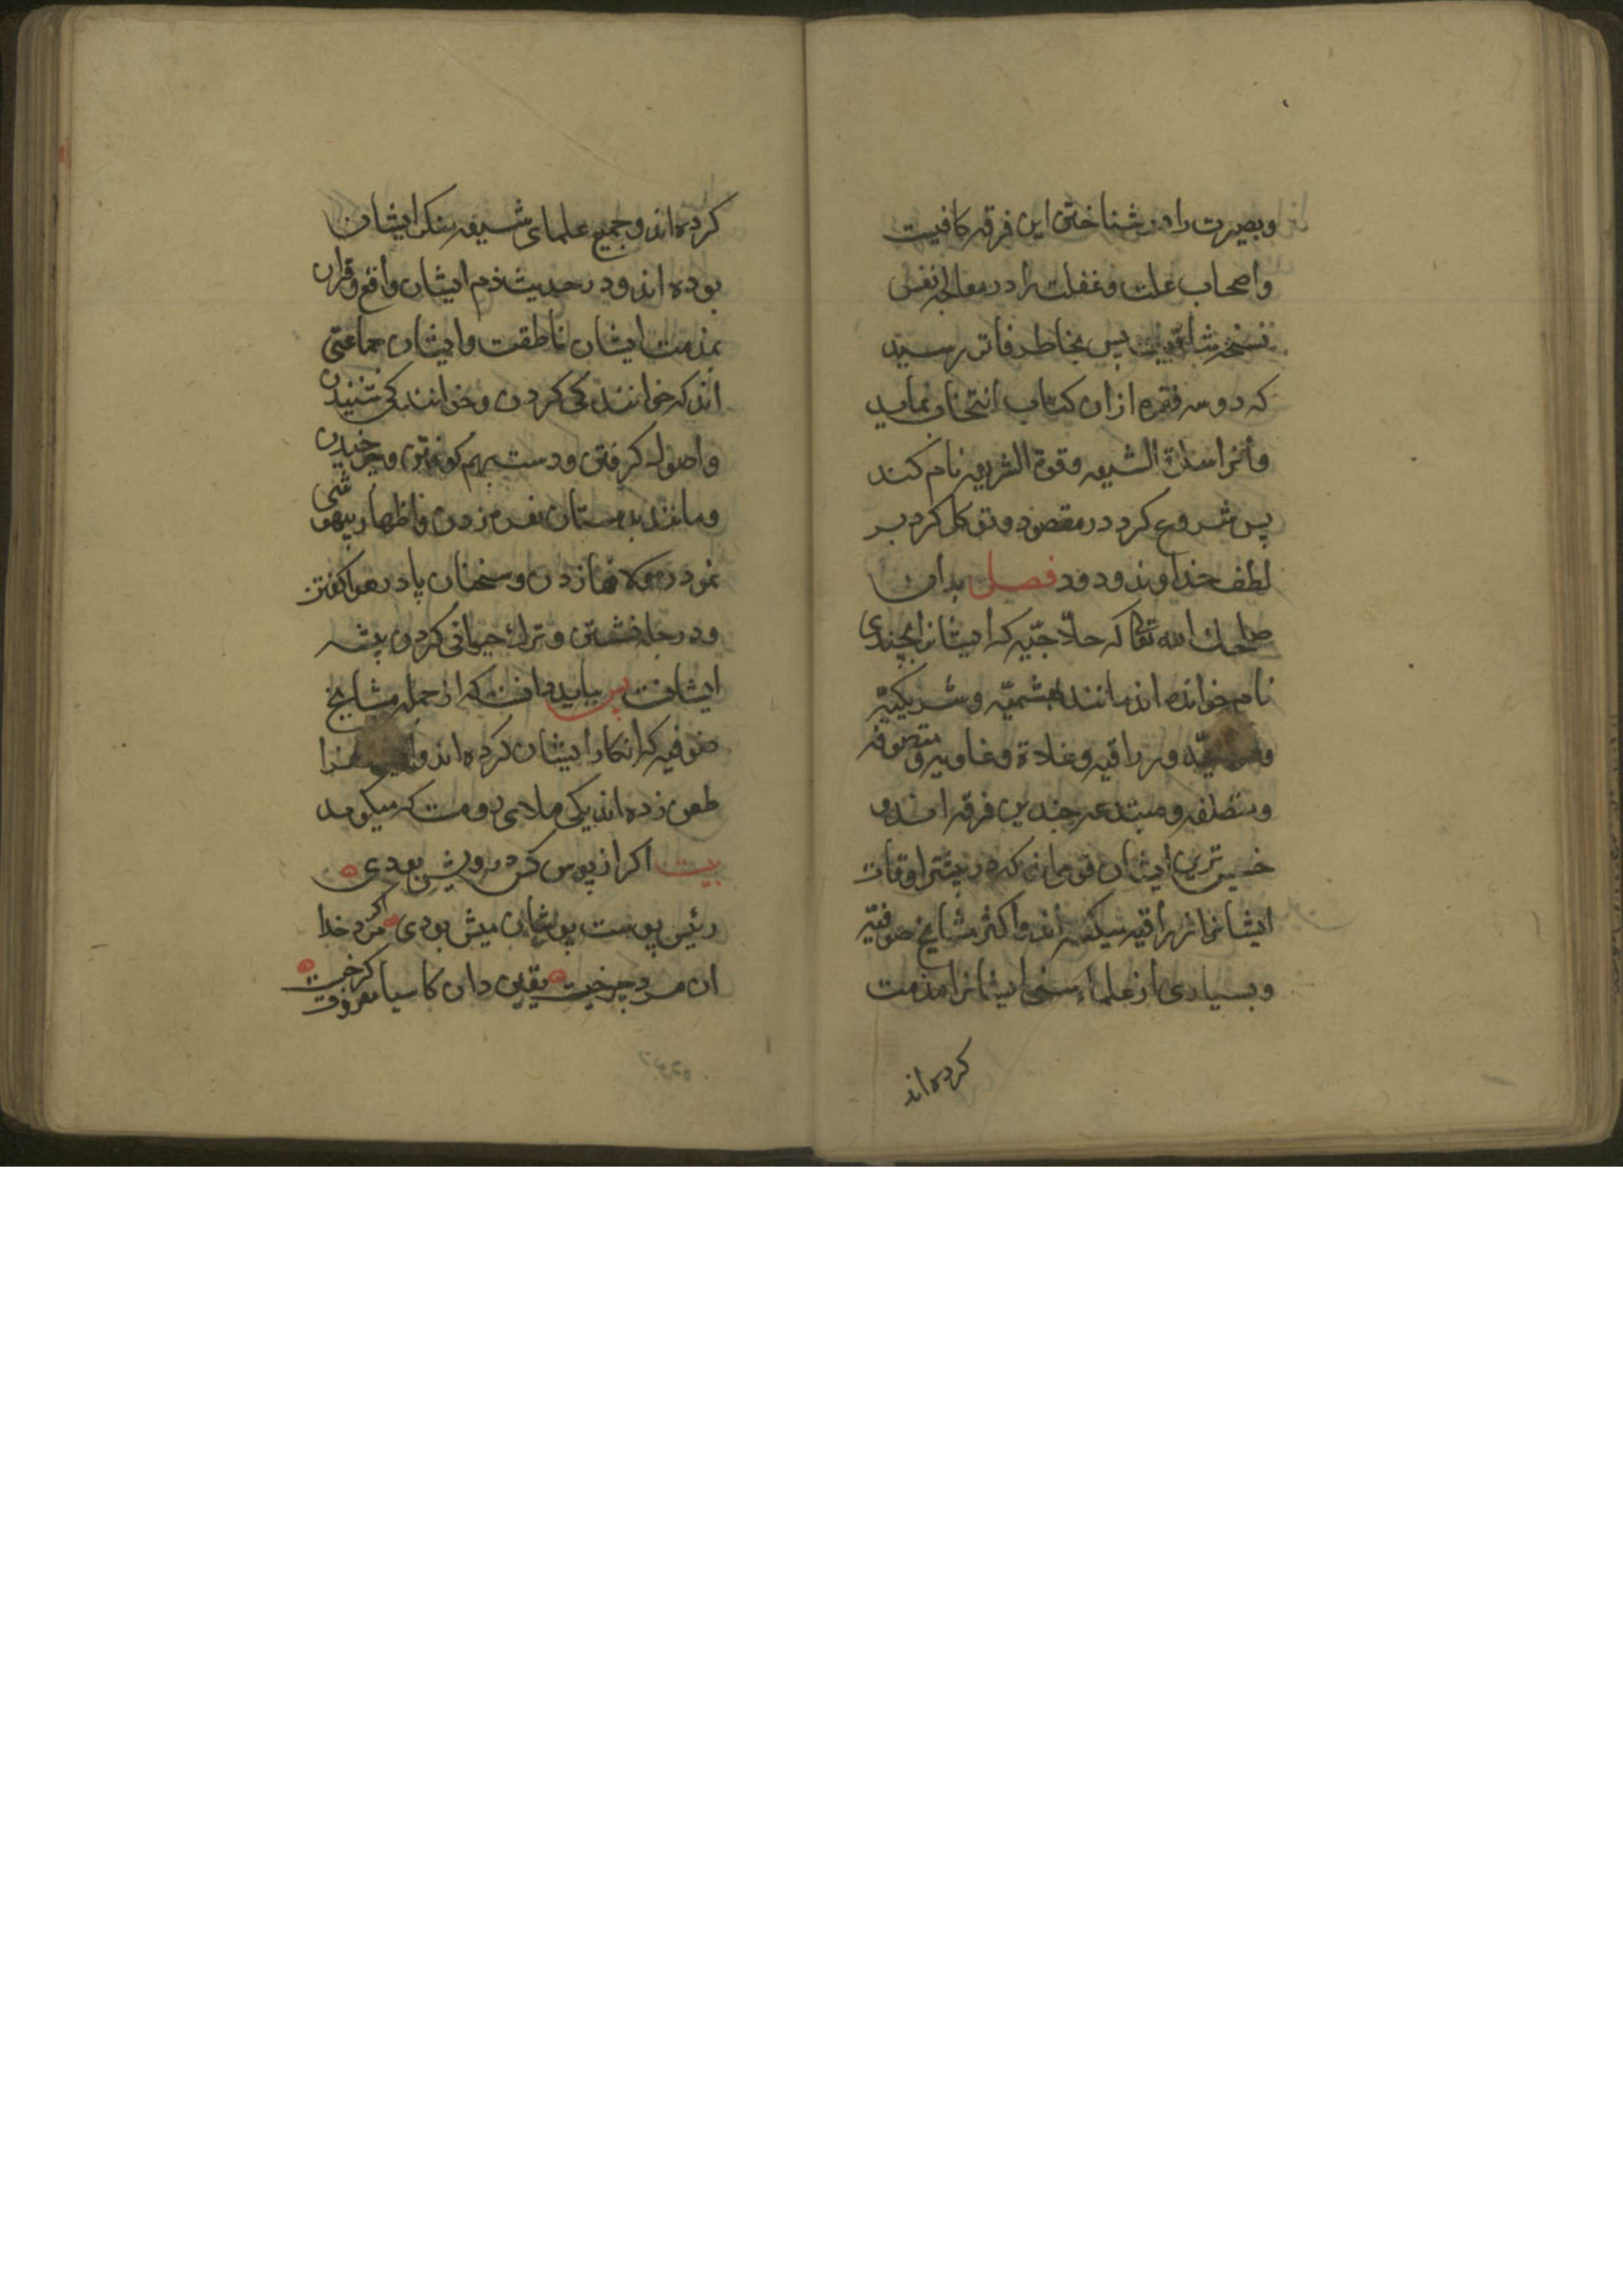 و بصیرت را در شناختن این فرقه کافیست
و اصحاب علت و غفلت را در معالجه نفس
نسخه شافیست پس بخاطر فاتر رسید
که دو سه فقره از ان کتاب انتخاب نماید
و انرا سلوة الشیعه و قوة الشریعه نام کند
پس شروع کرد در مقصود و توکل کرد بر
لطف خداوند ودود فصل بدان
اصلحك الله تعالی که حلاجیه که ایشانرا بچندی
نام خوانده اند مانند هشمیه و شریکیه
و زراقیه و غلاة و غاویه و متصوفه
و متصلفه و مبتدعه چندین فرقه اند و
خسیس ترین ایشان قومی اند که در بیشتر اوقات
ایشانرا زراقیه میگفته اند و اکثر مشایخ صوفیه
و بسیاری از علماء سنی ایشانرا مذمت
کرده اند
کرده اند و جمیع علمای شیعه منکر ایشان
بوده اند و در حدیث ذم ایشان واقع و قران
بمذمت ایشان ناطقت و ایشان جماعتی
اند که خوانندکی کردن و خوانندکی شنیدن
و اصول کرفتن و دست بهم کوفتن و چرخیدن
و مانند بدمستان نعره زدن و اظهار بیهوشی
نمودن و لافها زدن و سخنان پا در هوا کفتن
و در چله نشستن و ترك حیوانی کردن پیشه
ایشانست پس بباید دانست که از جمله مشایخ
صوفیه که انکار ایشان کرده اند
طعن زده اند یکی ملای رومست که میکوید
بیت اکر از پوس کس درویش بودی
رئیس پوست پوشان میش بودی اکر مرد خدا
ان مرد چرخیست یقین دان کاسیا معروف کرخیست